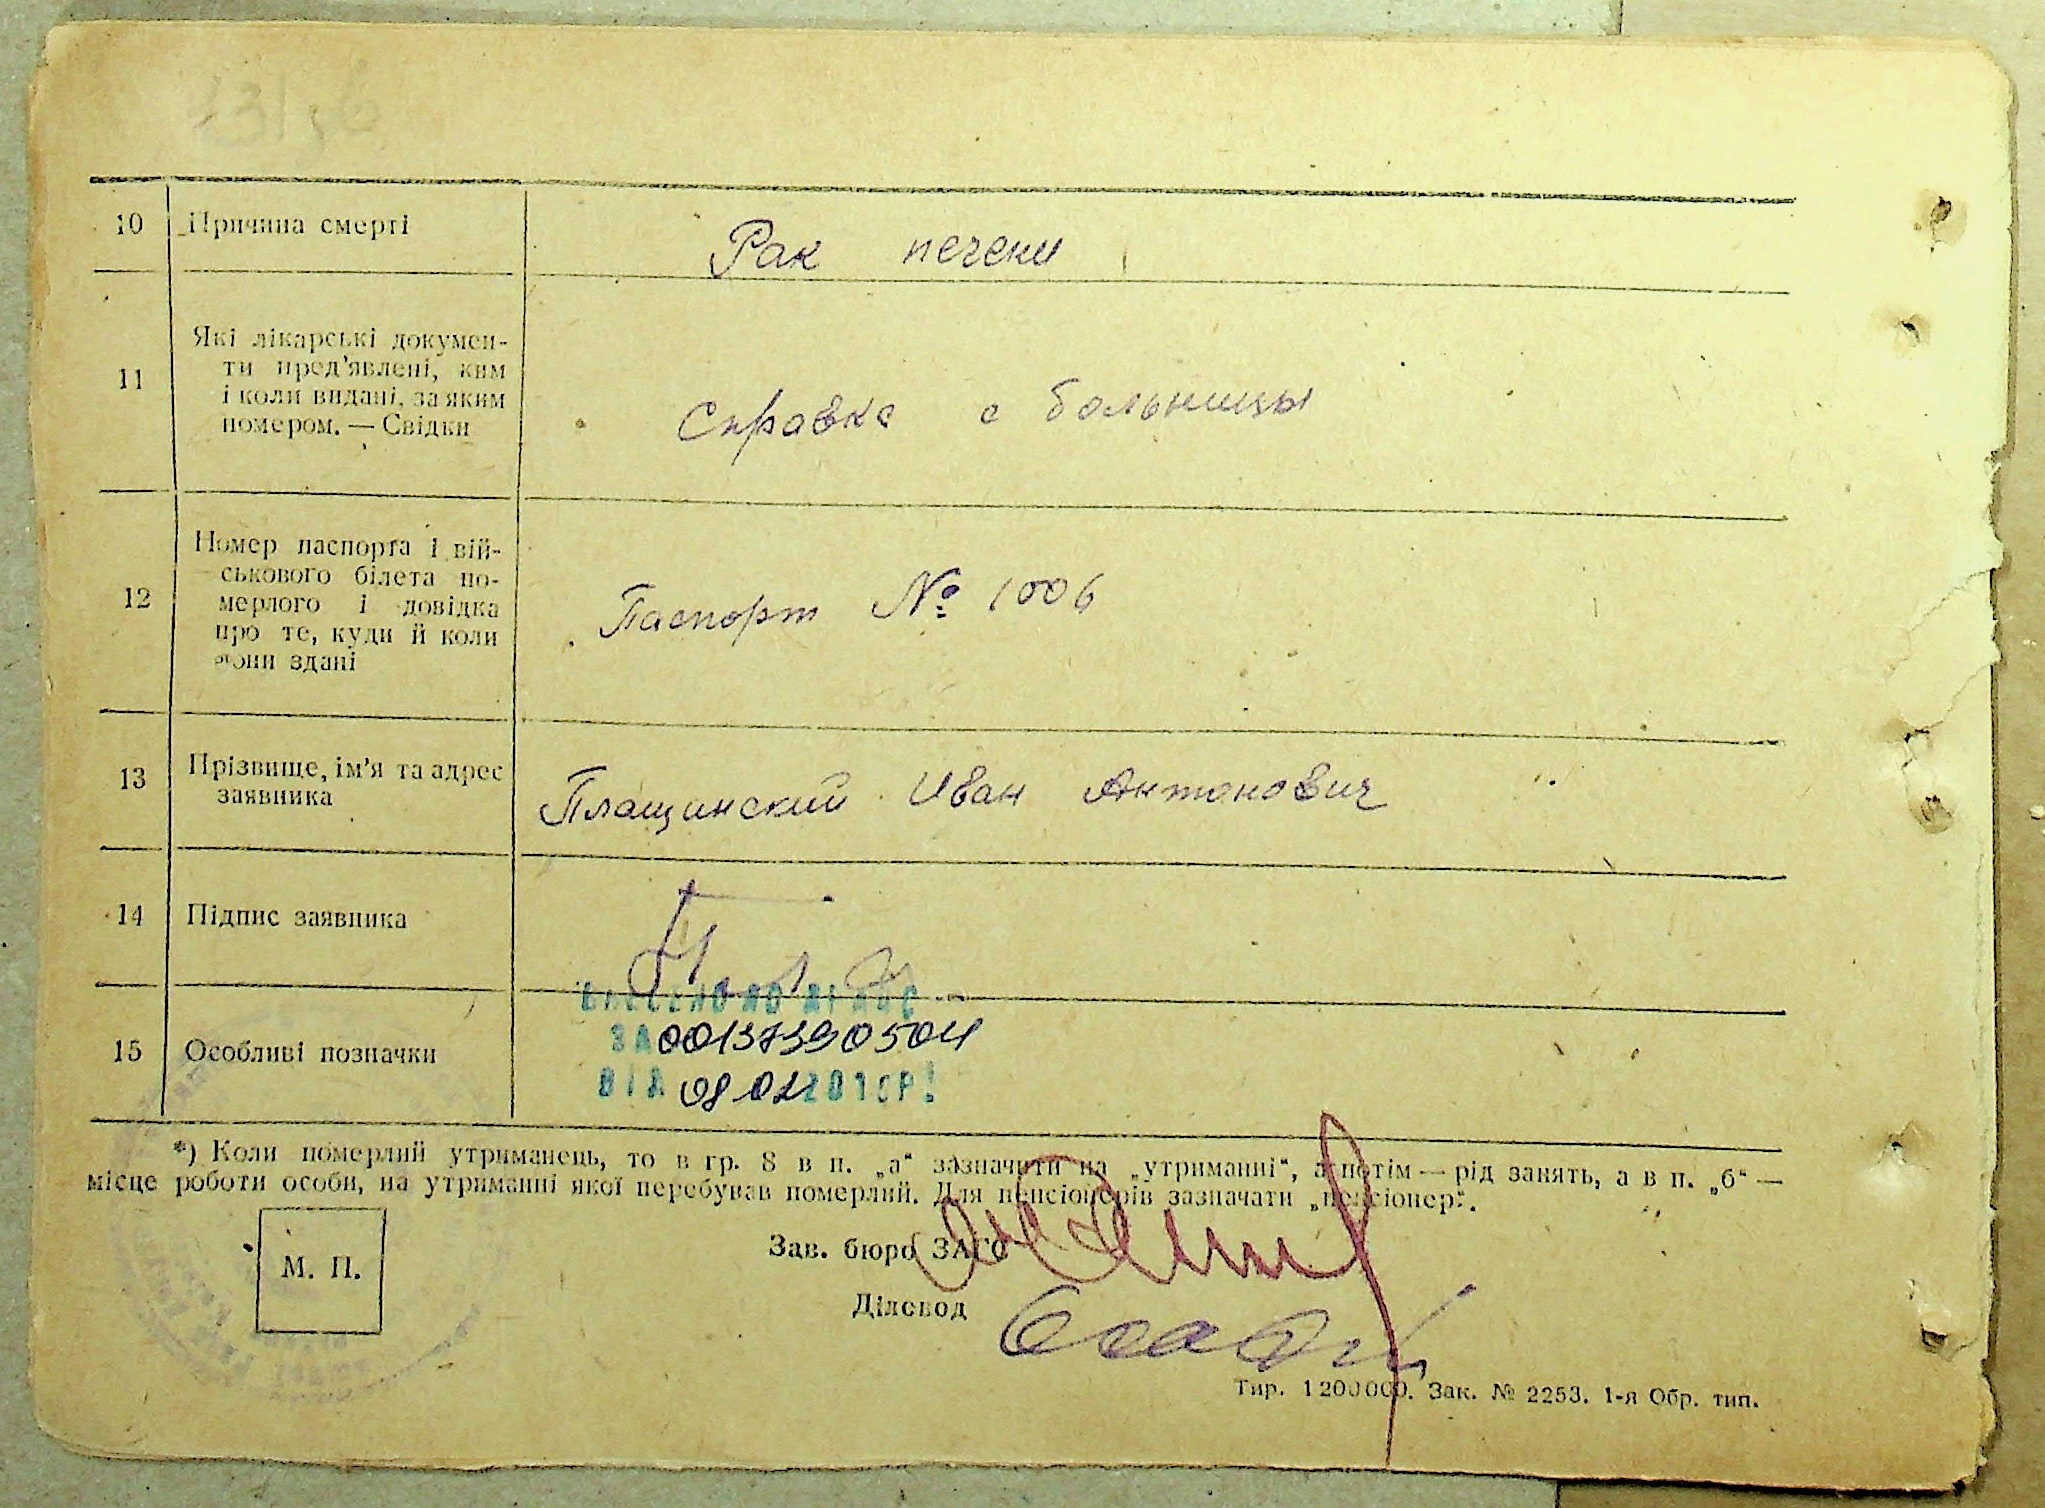 10 Причина смерті Рак печени
11 Які лікарські докумен-
ти пред'явлені, ким
і коли видані, за яким
номером. — Свідки
Справка с больницы
12 Номер паспорта і вій-
ськового білета по-
мерлого і довідка
про те, куди й коли
вони здані
Паспорт № 1006
13 Прізвище, ім'я та адрес
заявника
Плащинский Иван Антонович
14 Підпис заявника
15 Особливі позначки
ВНЕСЕНО ДО ДРАЦС
ЗА 00137390504
ВІД 08 02 2010Р.
*) Коли померлий утриманець, то в гр. 8 в п. „а“ зазначити на „утриманні“, а потім — рід занять, а в п. „б“ —
місце роботи особи, на утриманні якої перебував померлий. Для пенсіонерів зазначати „пенсіонер“.
М. П.
Зав. бюро ЗАГС
Діловод
Тир. 1200000. Зак. № 2253. 1-я Обр. тип.